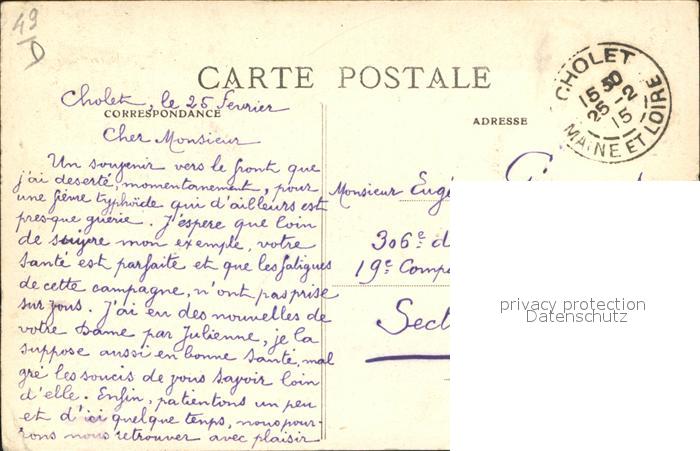 49
D
CARTE POSTALE
CHOLET
15 30
25 - 2
15
MAINE ET LOIRE
Cholet, le 25 Fevrier
CORRESPONDANCE
ADRESSE
Cher Monsieur
Un souvenir vers le front que
j'ai deserté, momentanement, pour
une fièvre typhoïde qui d'ailleurs est
presque guérie. J'éspere que loin
de suivre mon exemple, votre
santé est parfaite et que les fatigues
de cette campagne, n'ont pas prise
sur vous. J'ai eu des nouvelles de
votre Dame par Julienne, je la
suppose aussi en bonne santé, mal
gré les soucis de vous savoir loin
d'elle. Enfin, patientons un peu
et d'ici quelque temps, nous pour-
rons nous retrouver avec plaisir
Monsieur Eugè
306e d
19e Compa
Sect
privacy protection
Datenschutz